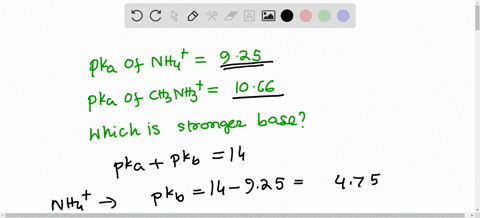 pka of NH₄⁺ = 9.25
pka of CH₃NH₃⁺ = 10.66
which is stronger base?
pka + pkb = 14
NH₄⁺ → pkb = 14 - 9.25 = 4.75